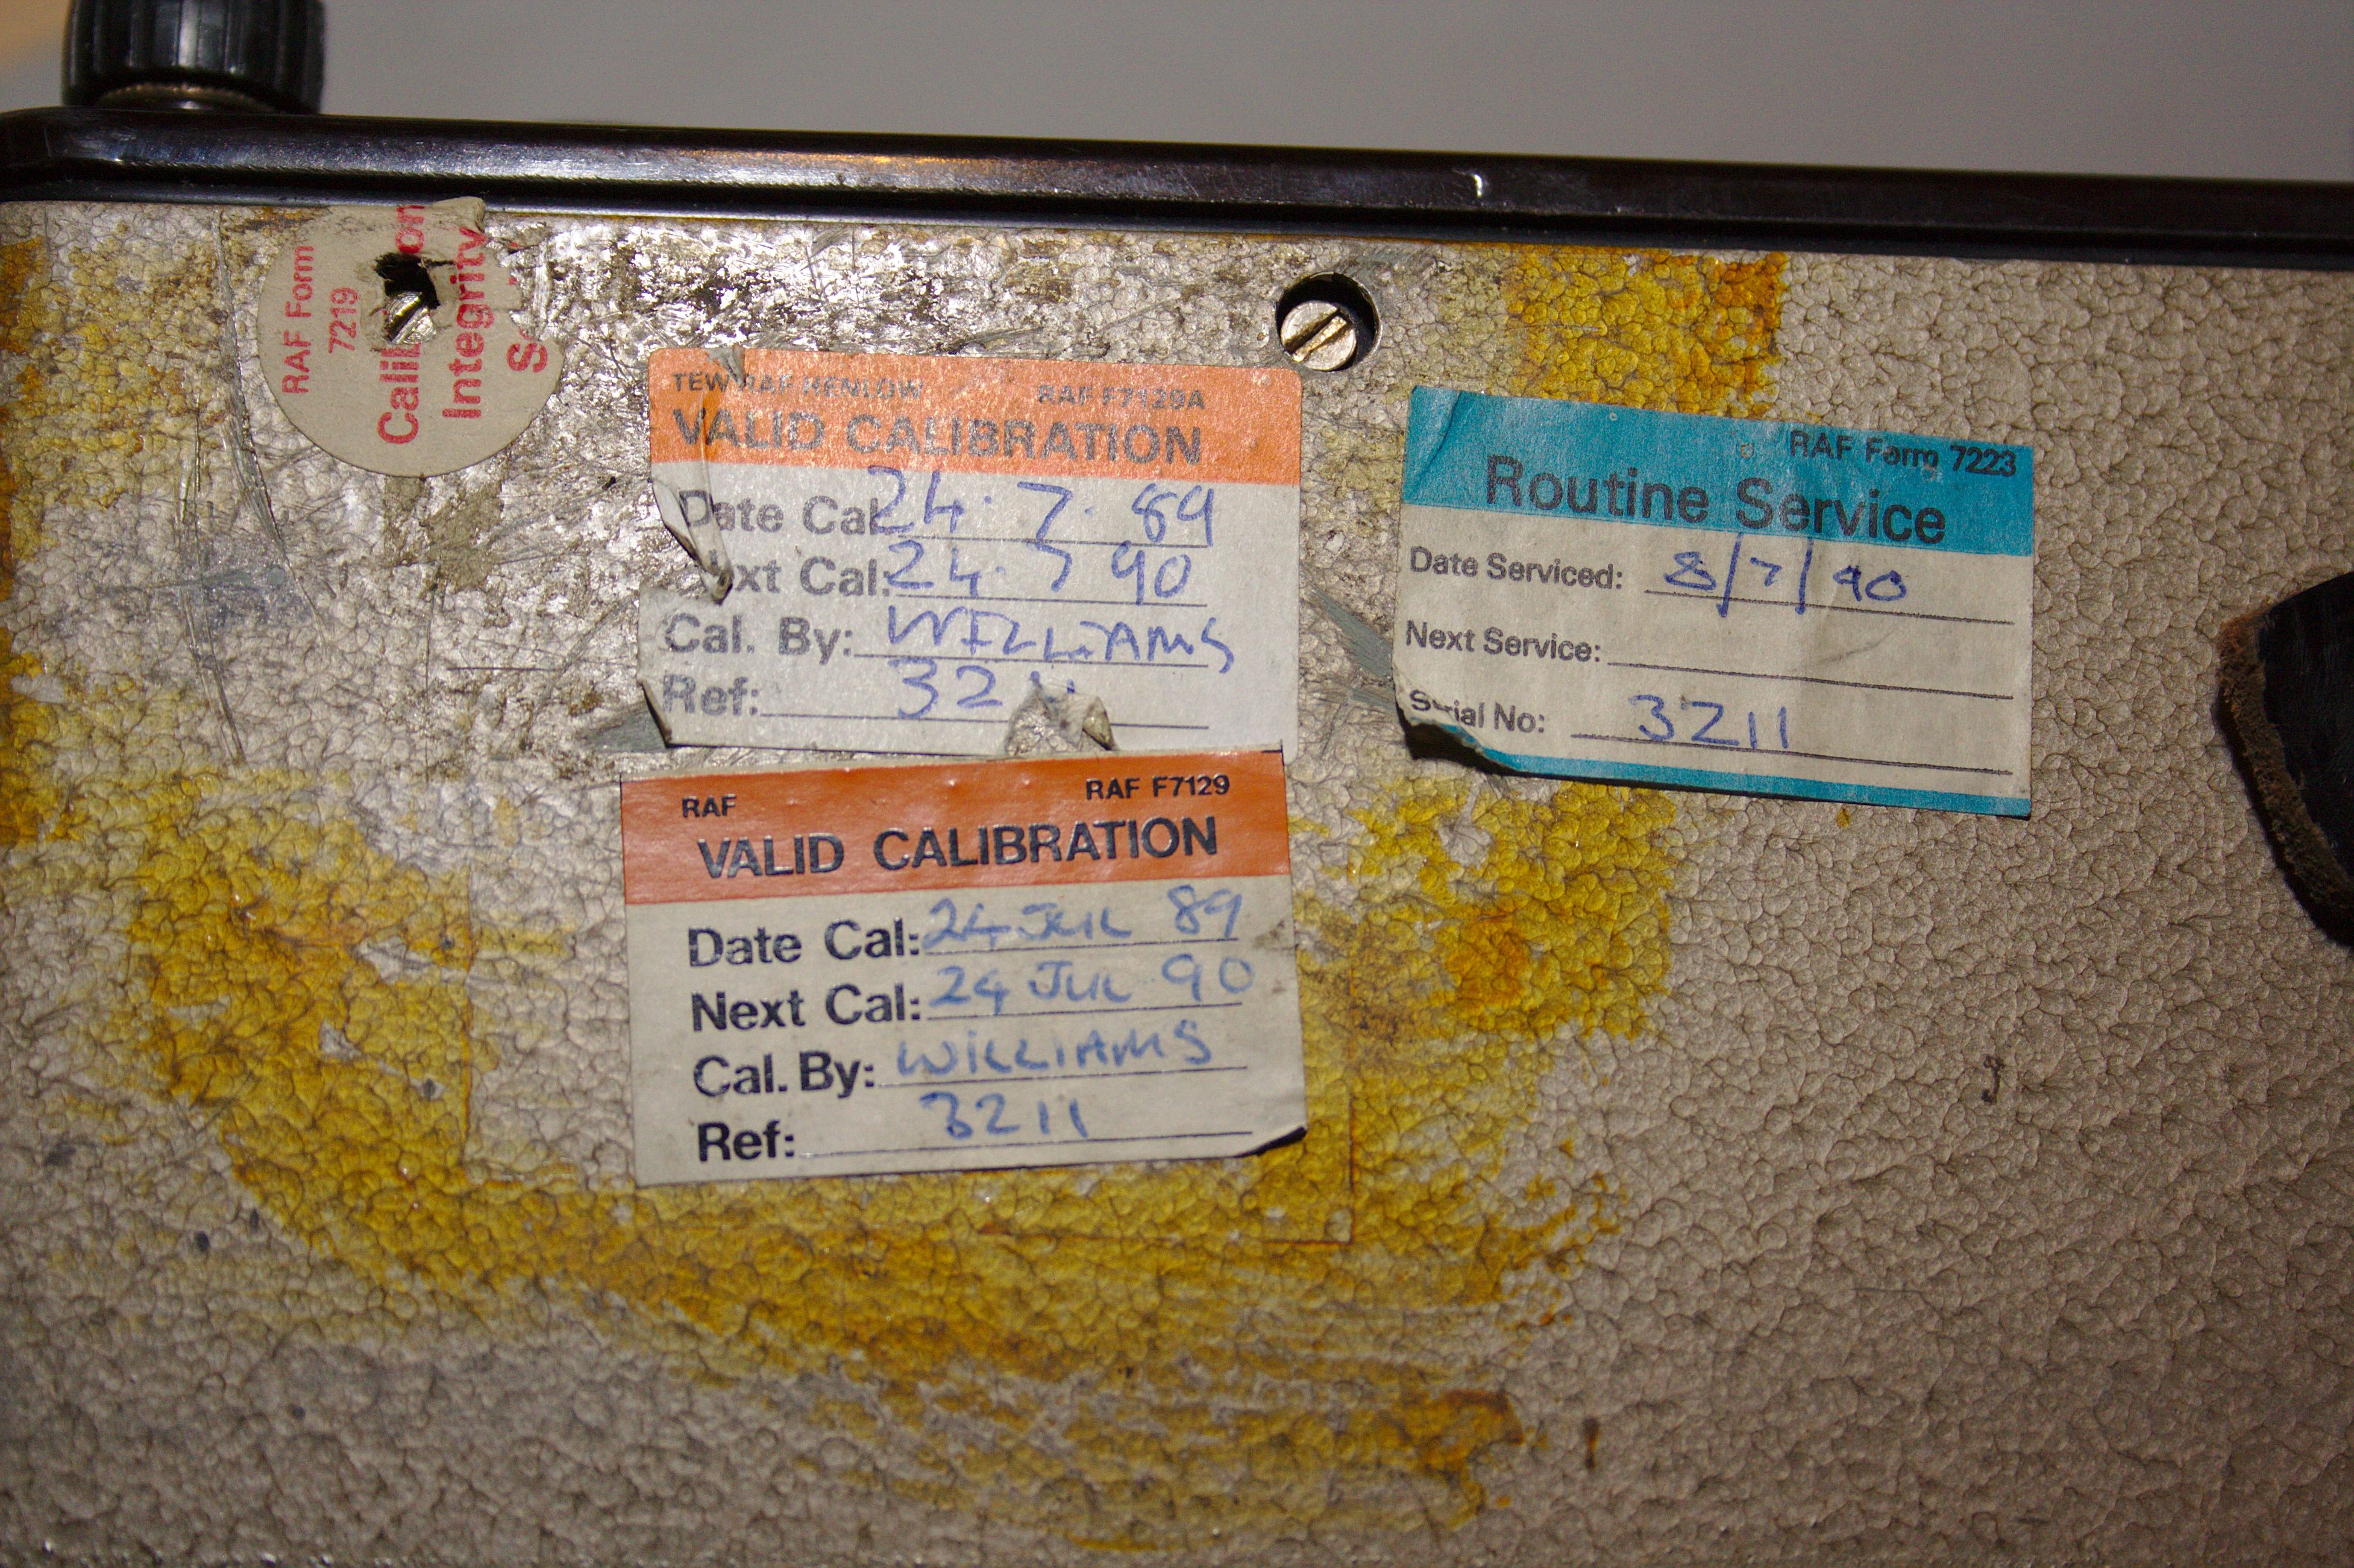 RAF Form
7219
Integrity
TEW RAF HENLOW RAF F7129A
VALID CALIBRATION
Date Cal: 24.7.89
Cal: 24.7 90
Cal. By: WILLIAMS
Ref:
RAF RAF F7129
VALID CALIBRATION
Date Cal: 24 JUL 89
Next Cal: 24 JUL 90
Cal. By: WILLIAMS
Ref: 3211
RAF Form 7223
Routine Service
Date Serviced: 8/7/90
Next Service:
No: 3211